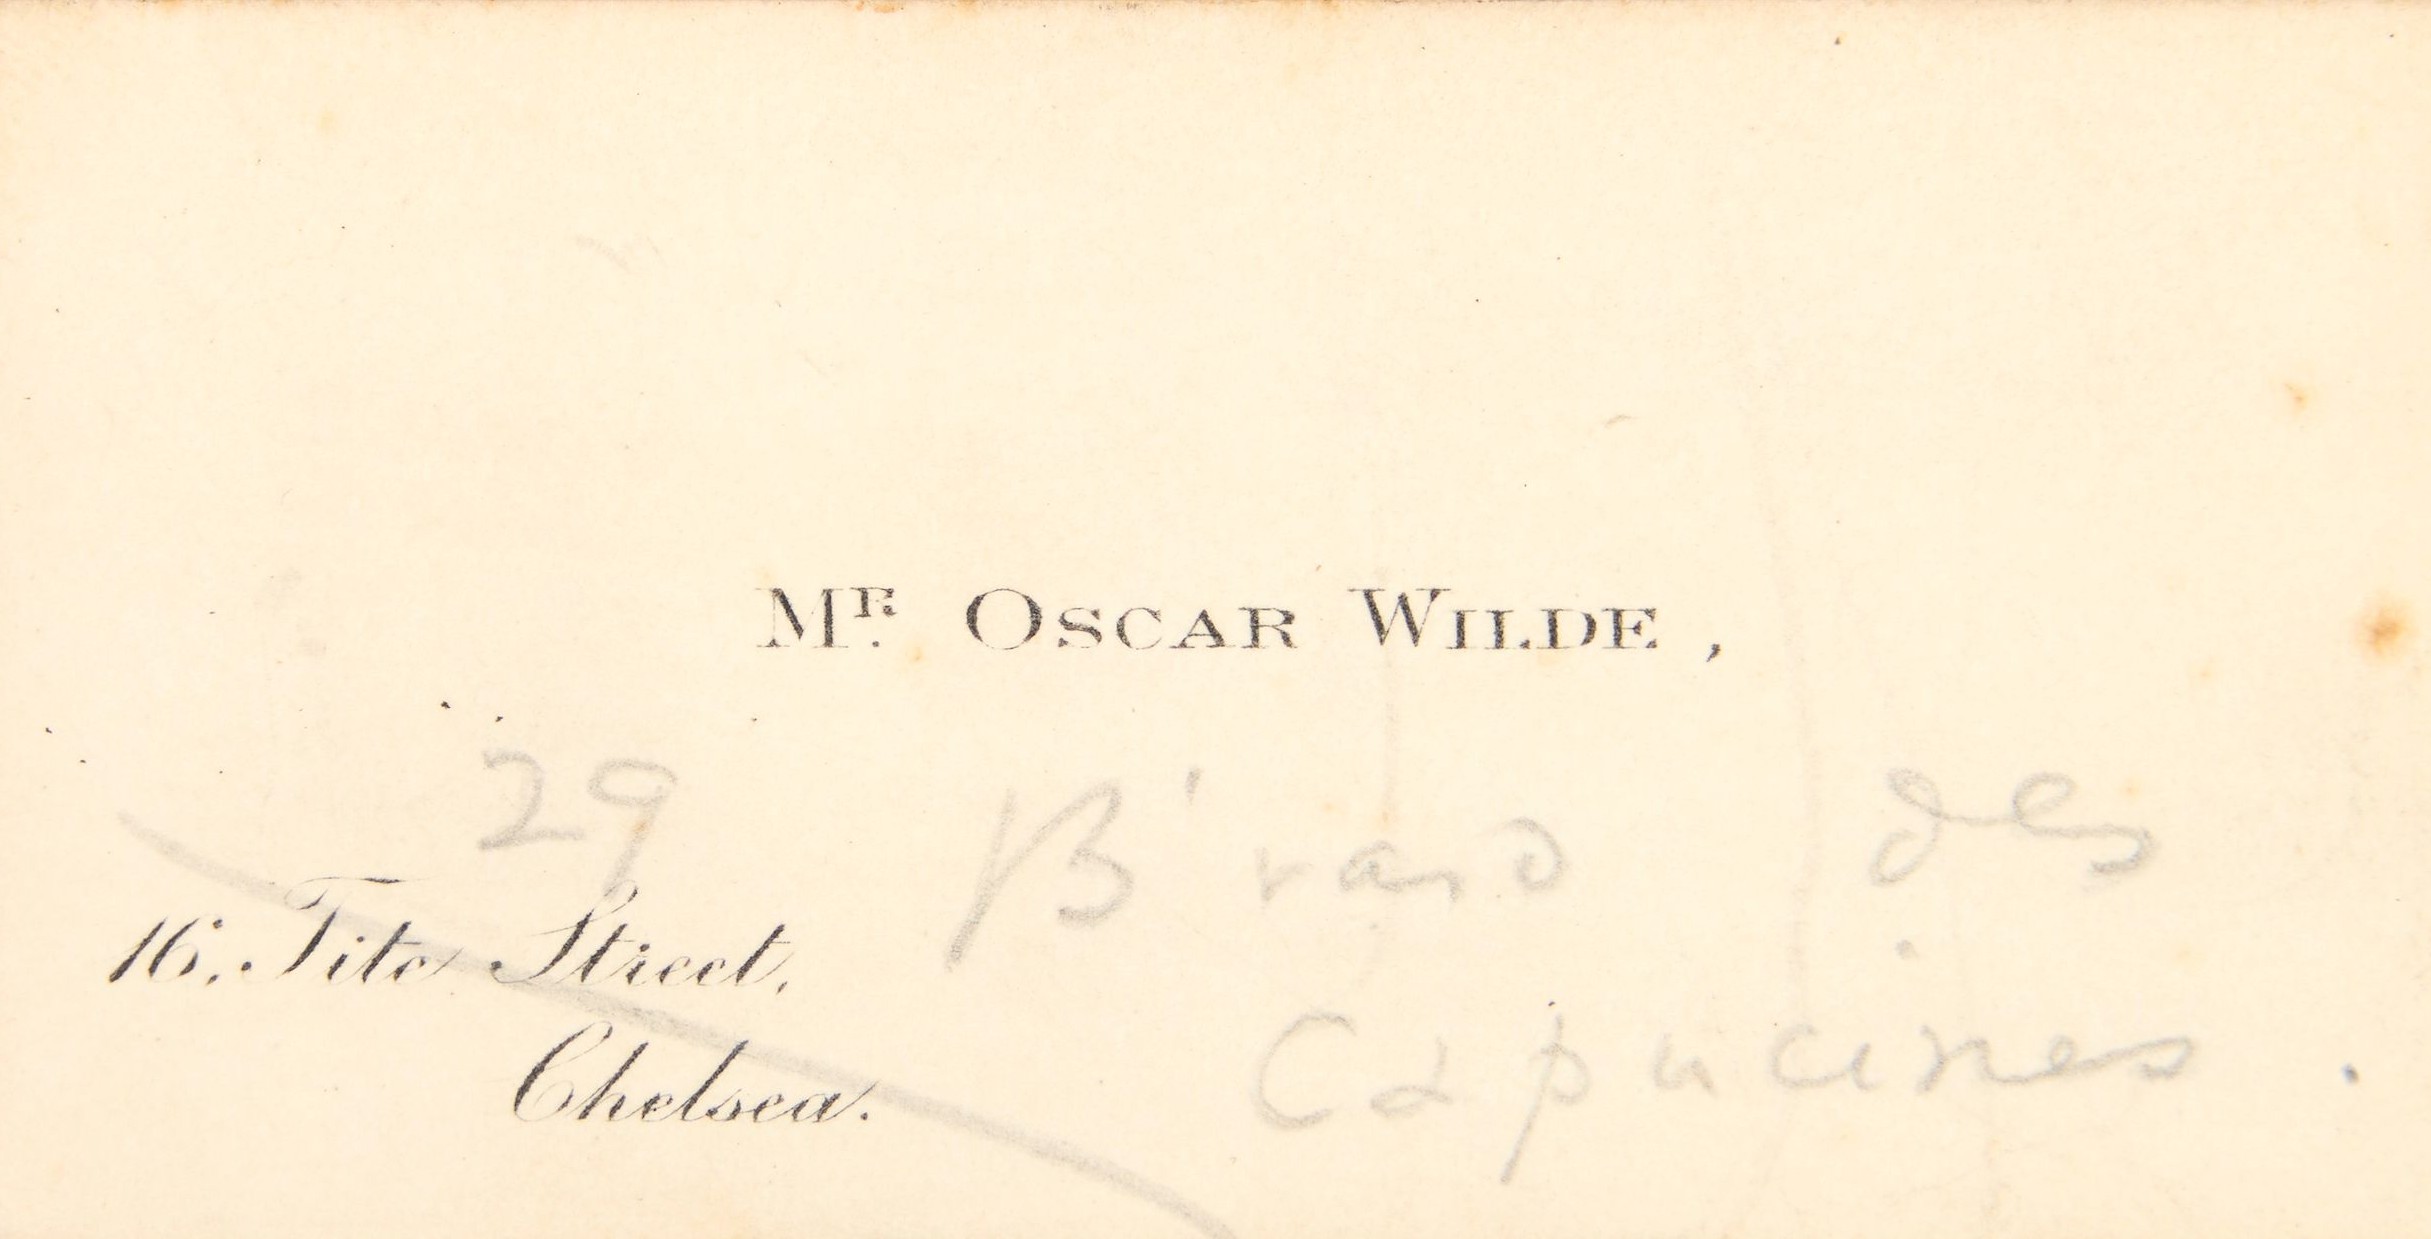 Mr. Oscar Wilde,
29 B'vard des
Capucines.
16. Tite Street,
Chelsea.